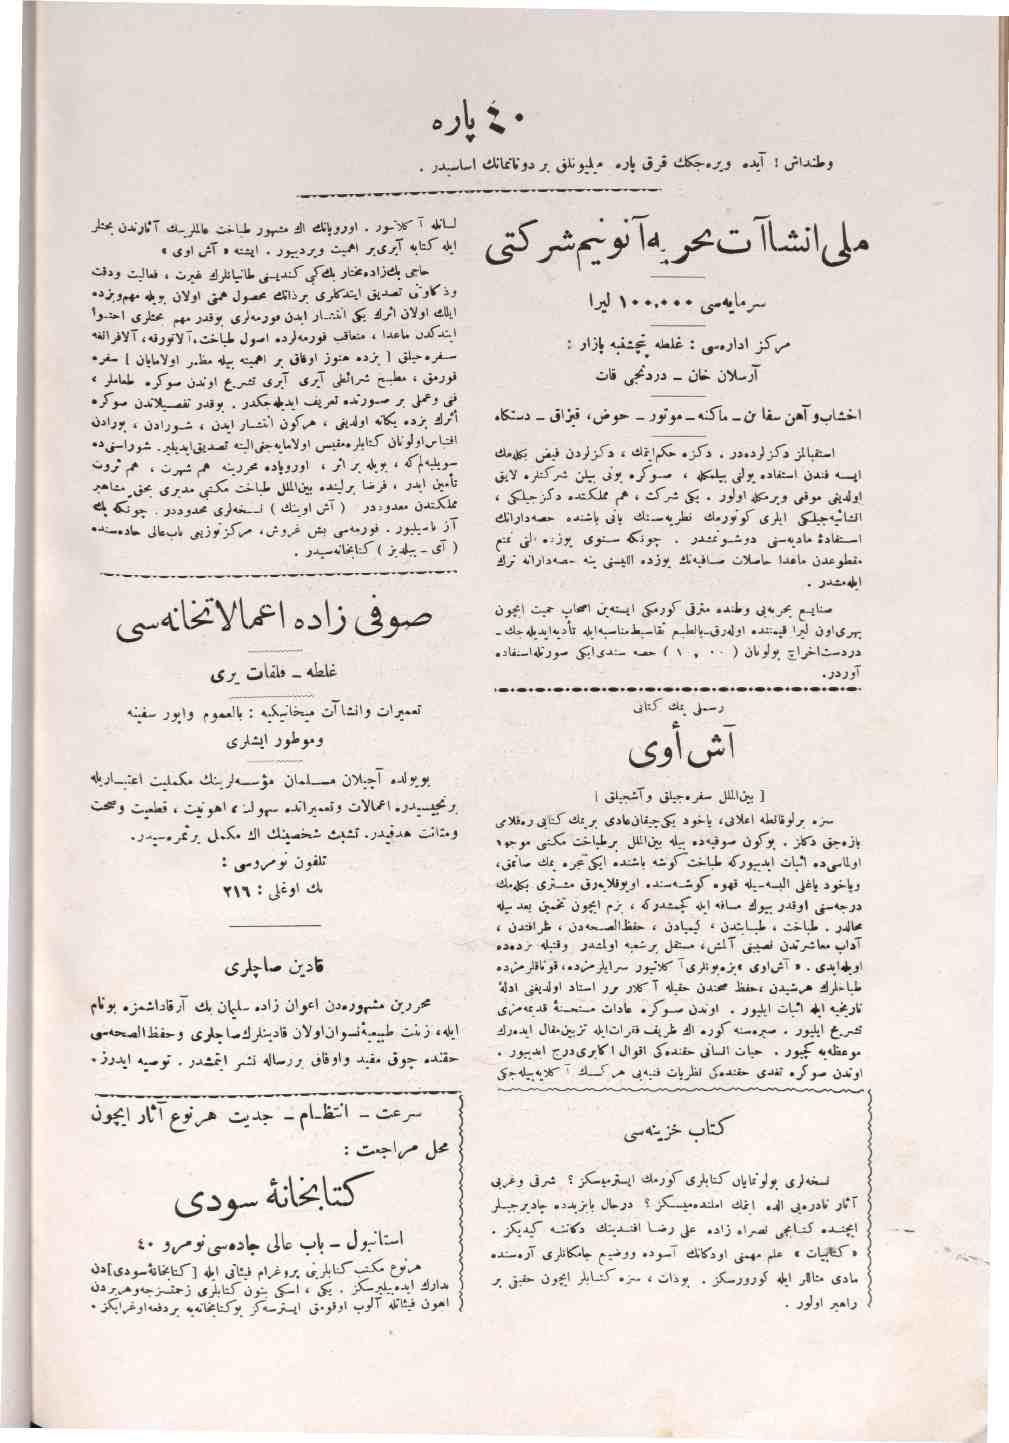 ٤٠ پاره
وطنداش ! آیده ویره‌جكك قرق پاره میلیونلق بر دوناتمانك اساسیدر .
ملی انشاآت بحریه آنونیم شركتی
سرمایه‌سی ١٠٠،٠٠٠ لیرا
مركز اداره‌سی : غلطه پنجشنبه پازار :
آرسلان خان – دردنجی قات
اخشاب و آهن سفائن – ماكنه – موتور – حوض، قیزاق – دستكاه
استقبالمز دكزلرده‌در . دكزه حكم ایتمك ، دكزلردن فیض بكله‌مك
ایسه فندن استفاده یولنی بیلمكله ، صوكره بونی بیلن شركتلره لایق
اولدیغی موقعی ویرمكله اولور . یكی شركت ، هم مملكتده دكزجیلكی ،
انشائیه‌جیلكی ایلری كوتورمك نظریه‌سنك یانی باشنده حصه‌دارانك
استفادهٔ مادیه‌سنی دوشونمشدر . چونكه سنوی یوزده التی تمتع
مقطوعدن ماعدا حاصلات صافیه‌نك یوزده اللیسنی ینه حصه‌دارانه ترك
ایله‌مشدر .
صنایع بحریه‌یی وطنده مترقی كورمكی ایسته‌ین اصحاب حمیت ایچون
بهری اون لیرا قیمتنده اوله‌رق بالطبع تقاسیط مناسبه ایله تأدیه ایدیله‌جك –
دردست اخراج بولونان حصه سندی ایكی صورتله استفاده
آوردر.
رسملی یمك كتابی
آش أوی
[ بین‌الملل سفره‌جیلق وآشجیلق ]
سزه برلوقانطه اعلانی، یاخود یكی چیقان عادی بریمك كتابی ره‌قلامی
یازه‌جق دكلز . بوكون صوفیه‌ده بیله بین‌الملل برطباخت مكتبی موجود
اولماسی‌ده اثبات ایدییوركه طباخت كوشه باشنده ایكی تنجره یمك صاتمق،
ویاخود یاغلی البسه‌سیله قهوه كوشه‌سنده اویوقلایه‌رق مشتری بكله‌مك
درجه‌سنی اوقدر بیوك مسافه ایله كچمشدركه ، بزم ایچون تخمین بعد بیله
محالدر . طباخت ، طبابتدن ، كیمیادن ، حفظ‌الصحه‌دن ، ظرافتدن ،
آداب معاشرتدن نصیبنی آلمش، مستقل برشعبه اولمشدر وقتیله بزده‌ده
اویله‌ایدی . « آش اوی » بزه بونلری آكلاتیور سرایلرمزده، قوناقلرمزده
طباخلرك هرشیدن ،حفظ صحتدن حقیله آكلار برر استاد اولدیغنی ادلهٔ
تاریخیه ایله اثبات ایلیور . اوندن صوكره عادات مستحسنهٔ قدیمه‌مزی
تشریح ایلیور . صیره‌سنه كوره اك ظریف فقرات ایله تزیین مقال ایده‌رك
موعظه‌یه كچیور . حیات انسانی حقنده‌كی اقوال اكابری درج ایدییور .
اوندن صوكره تغدی حقنده‌كی نظریات فنیه‌یی هركسك آكلایه‌بیله‌جكی
لسانله آكلاتیور . اوروپانك اك مشهور طباخت عالملرینك آثارندن بحثلر
ایله كتابه آیری بر اهمیت ویردیریور . ایشته « آش اوی »
حاجی بك‌زاده مختار بك كبی كندیسنی طانیانلرك غیرت ، فعالیت ودقت
وذكاوتنی تصدیق ایتدكلری برذاتك محصول همتی اولان بویله مهم وبزده
ایلك اولان اثرك یكی انتشار ایدن فورمه‌لری بوقدر مهم بحثلری احتوا
ایتدكدن ماعدا ، متعاقب فورمه‌لرده اصول طباخت، آلاتورقه، آلافرانغه
سفره‌جیلق [ بزده هنوز اوفاق بر اهمیته بیله مظهر اولامایان ] سفره
قورمق ، مطبخ شرائطی آیری آیری تشریح اوندن صوكره طعاملر ،
فنی وعملی بر صورتده تعریف ایدیله‌جكدر . بوقدر تفصیلاتدن صوكره
أثرك بزده یكانه اولدیغی ، هركون انتشار ایدن ، شورادن ، بورادن
اقتباس اولونان كتابلره مقیس اولامایه‌جغی البته تصدیق ایدیلیر. شوراسنی‌ده
سویلیه‌لم كه ، بویله بر اثر ، اوروپاده محررینه هم شهرت ، هم ثروت
تأمین ایدر ، فرضا برلینده بین‌الملل طباخت مكتبی مدیری بحق مشاهیر
مملكتدن معدوددر ( آش اوینك ) نسخه‌لری محدوددر . چونكه پك
آز باصیلیور . فورمه‌سی بش غروش، مركز توزیعی باب‌عالی جاده‌سنده
( آی – ییلدیز ) كتابخانه‌سیدر .
صوفی زاده اعمالاتخانه‌سی
غلطه – قلفات یری
تعمیرات وانشاآت میخانیكیه : بالعموم واپور سفینه
وموطور ایشلری
بویولده آچیلان مسلمان مؤسسه‌لرینك مكملیت اعتباریله
برنجیسیدر. اعمالات وتعمیراتده سهولت ، اهونیت ، قطعیت وصحت
ومتانت هدفیدر. تشبث شخصینك اك مكمل برثمره‌سیدر.
تلفون نومروسی :
بك اوغلی : ٢١٦
قادین صاچلری
محررین مشهوره‌دن اعوان زاده سلیمان بك آرقاداشمزه بونام
ایله، زینت طبیعیهٔ نسوان اولان قادینلرك صاچلری وحفظ الصحه‌سی
حقنده چوق مفید واوفاق بررساله نشر ایتمشدر. توصیه ایدرز.
سرعت – انتظام – جدیت هرنوع آثار ایچون
محل مراجعت :
كتابخانهٔ سودی
استانبول – باب عالی جاده‌سی نومرو ٤٠
هرنوع مكتب كتابلرینی پروغرام فیئاتی ایله [كتابخانهٔ سودی]دن
تدارك ایده‌بیلیرسكز . یكی ، اسكی بتون كتابلری زحمتسزجه وهریردن
اهون فیئاتله آلوب اوقومق ایسترسه‌كز بوكتابخانه‌یه بردفعه اوغرایكز .
كتاب خزینه‌سی
نسخه‌لری بولونمایان كتابلری كورمك ایسترمیسكز ؟ شرقی وغربی
آثار نادره‌یی الده ایتمك املنده‌میسكز ؟ درحال بایزیدده چادیرجیلر
ایچنده كتابجی نصرالله زاده علی رضا افندینك دكاننه كیدیكز .
« كتابیات » علم مهمنی اودكانك آسوده ووضیع جامكانلری آره‌سنده
مادی مثاللر ایله كورورسكز . بوذات ، سزه كتابلر ایچون حقیقی بر
راهبر اولور .